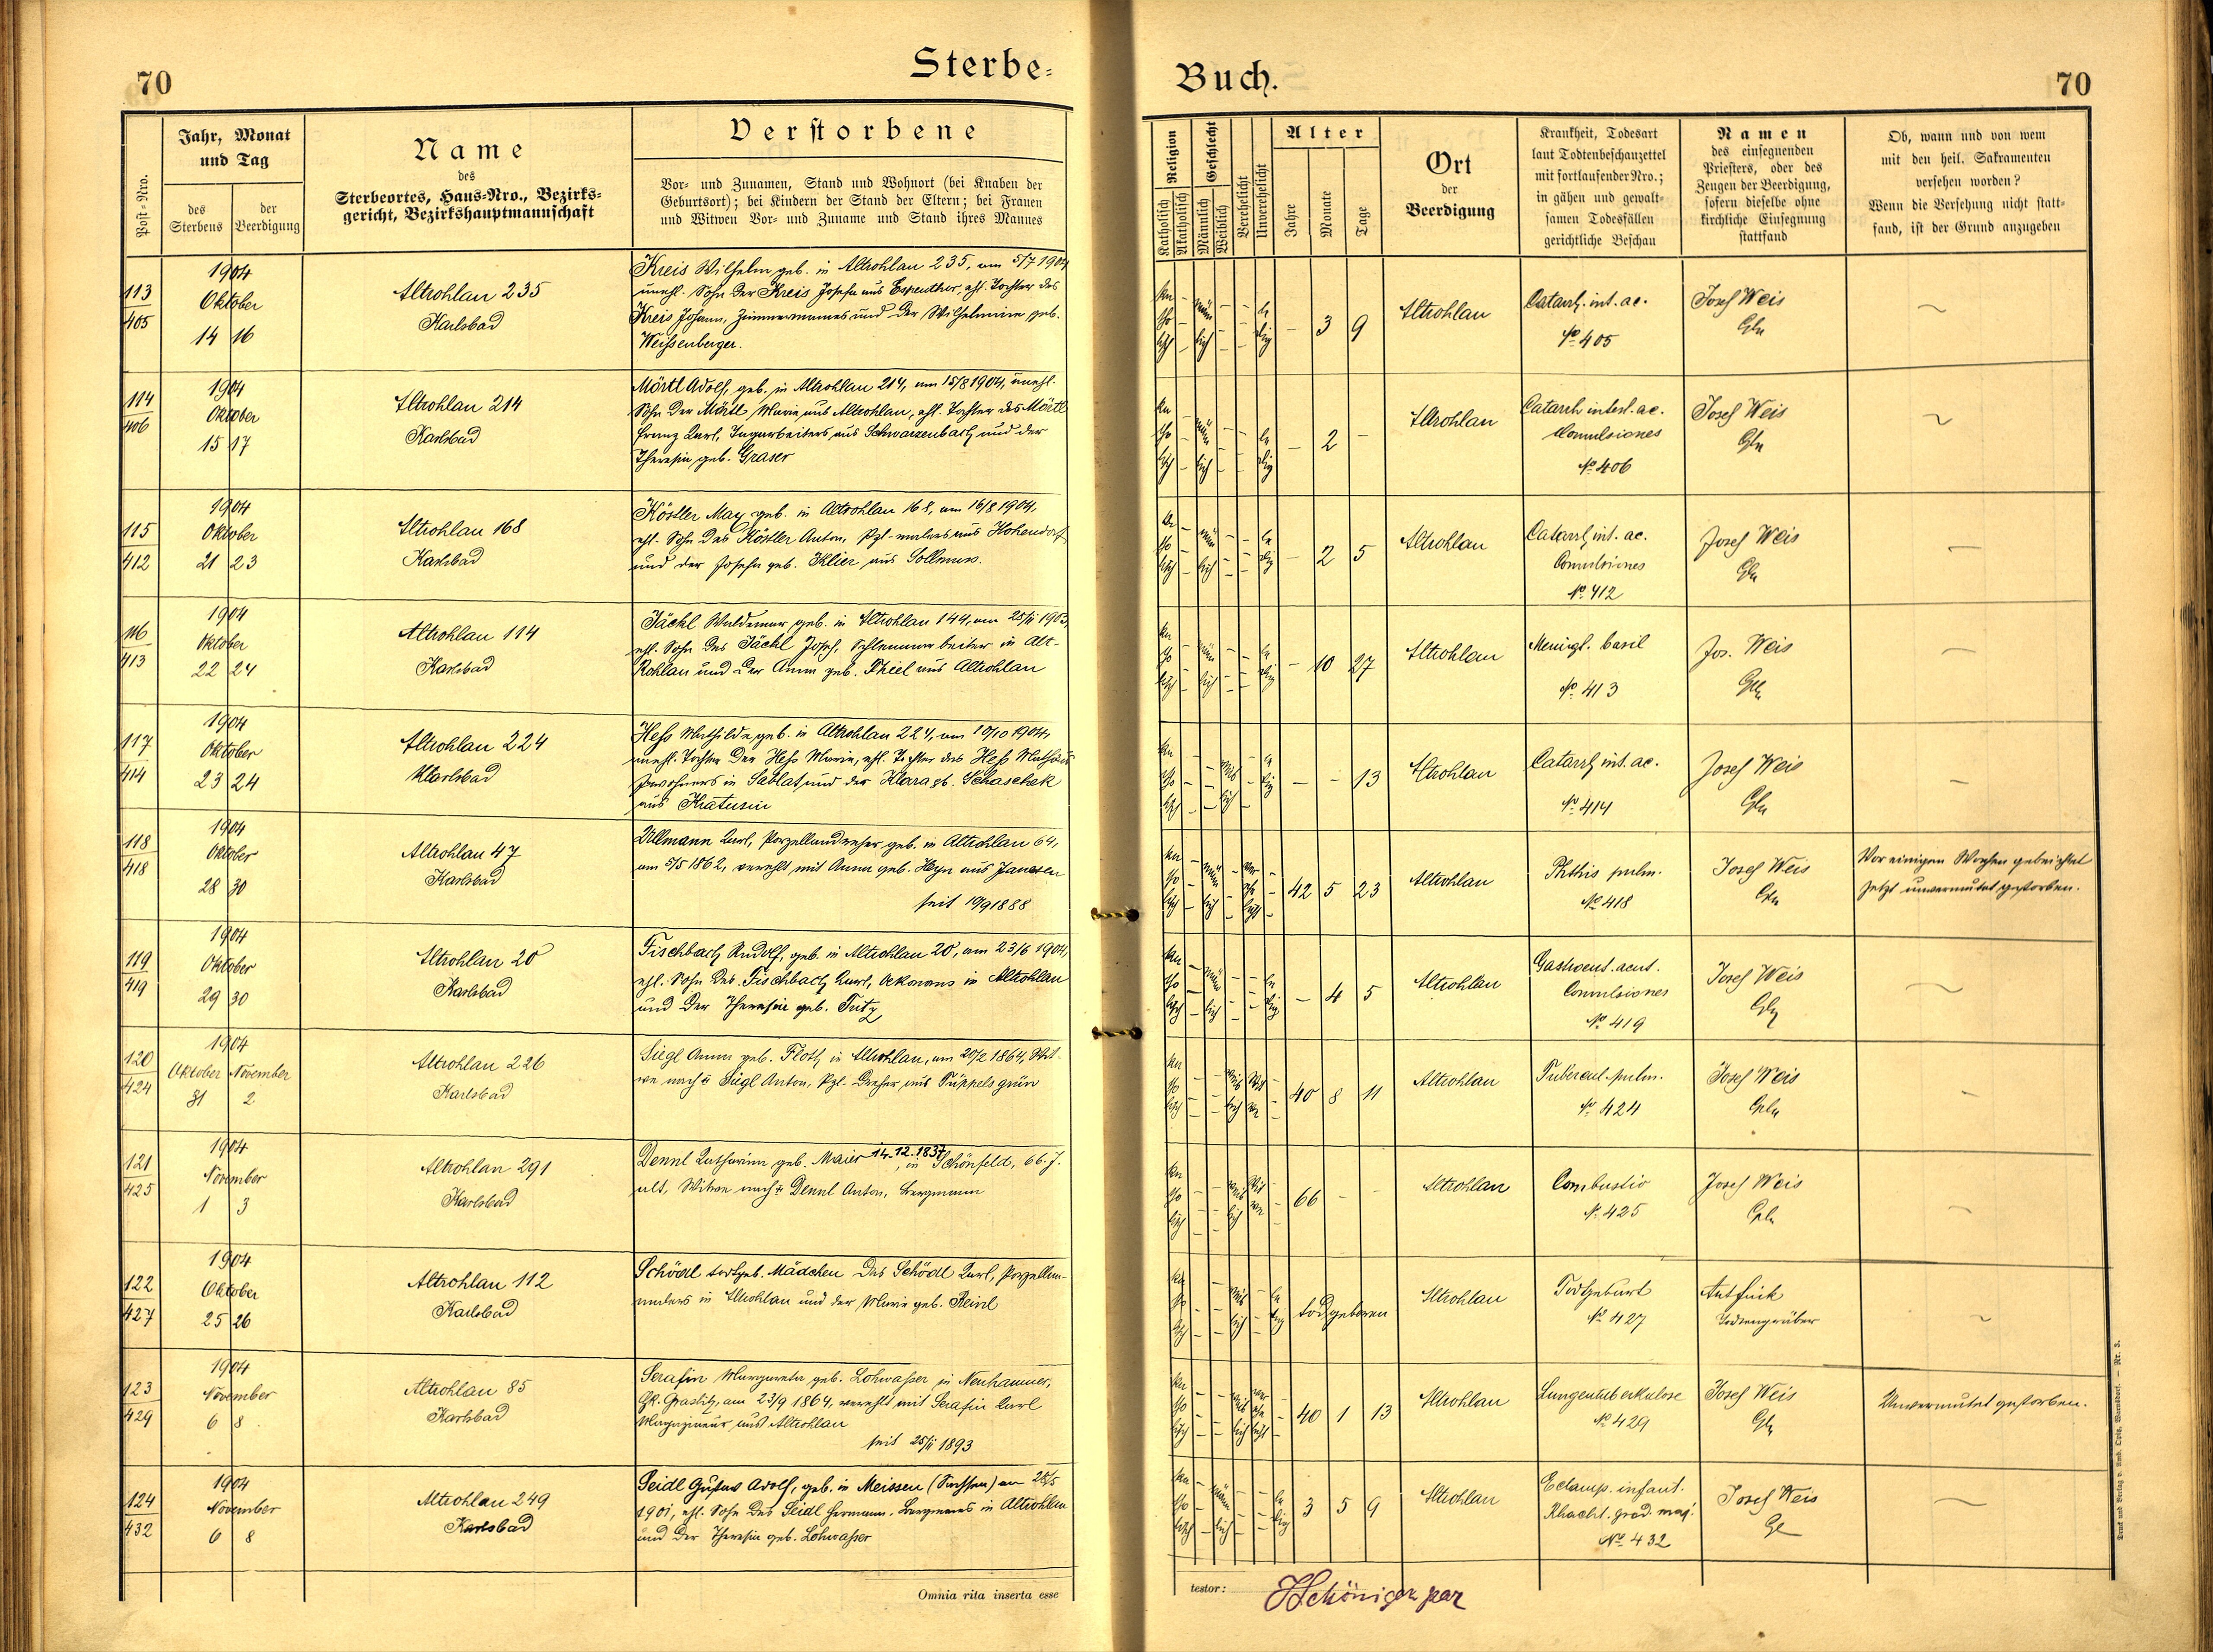 70
Sterbe-
Buch.
70
Post-Nro.
Jahr, Monat
und Tag
des
Sterbens
der
Beerdigung
Name
des
Sterbeortes, Haus-Nro., Bezirks-
gericht, Bezirkshauptmannschaft
Verstorbene
Vor- und Zunamen, Stand und Wohnort (bei Knaben der
Geburtsort); bei Kindern der Stand der Eltern; bei Frauen
und Witwen Vor- und Zuname und Stand ihres Mannes
Religion
Katholisch
Akatholisch
Geschlecht
Männlich
Weiblich
Verehelicht
Unverehelicht
Alter
Jahre
Monate
Tage
Ort
der
Beerdigung
Krankheit, Todesart
laut Todtenbeschauzettel
mit fortlaufender Nro.;
in gähen und gewalt-
samen Todesfällen
gerichtliche Beschau
Namen
des einsegnenden
Priesters, oder des
Zeugen der Beerdigung,
sofern dieselbe ohne
kirchliche Einsegnung
stattfand
Ob, wann und von wem
mit den heil. Sakramenten
versehen worden?
Wenn die Versehung nicht statt-
fand, ist der Grund anzugeben
113
405
1904
Oktober
14 16
Altrohlau 235
Karlsbad
Kreis Wilhelm geb. in Altrohlau 235, am 5/7 1904
unehl. Sohn der Kreis Josefa aus Espenthor, ehl. Tochter des
Kreis Johann, Zimmermannes und der Wilhelmine geb.
Weissenberger.
- 3 9
Altrohlau
Catarrh. int. ac.
No 405
Josef Weis
114
406
1904
Oktober
15 17
Altrohlau 214
Karlsbad
Mörtl Adolf, geb. in Altrohlau 214, am 15/8 1904, unehl.
Sohn der Mörtl Marie aus Altrohlau, ehl. Tochter des Mörtl
Franz Karl, Tagarbeiters aus Schwarzenbach und der
Theresia geb. Graser
- 2 -
Altrohlau
Catarrh intest. ac.
Convulsiones
No 406
Josef Weis
115
412
1904
Oktober
21 23
Altrohlau 168
Karlsbad
Köstler Max geb. in Altrohlau 168, am 16/8 1904,
ehl. Sohn des Köstler Anton, Pzl-malers aus Hohendorf
und der Josefa geb. Klier aus Sollmus.
- 2 5
Altrohlau
Catarrh int. ac.
Convulsiones
No 412
Josef Weis
116
413
1904
Oktober
22 24
Altrohlau 114
Karlsbad
Jäckl Waldemar geb. in Altrohlau 144, am 25/11 1903,
ehl. Sohn des Jäckl Josef, Schlemmarbeiter in Alt-
Rohlau und der Anna geb. Thiel aus Altrohlau
- 10 27
Altrohlau
Meningt. basil
No 413
Jos. Weis
117
414
1904
Oktober
23 24
Altrohlau 224
Karlsbad
Hess Mathilde geb. in Altrohlau 224, am 10/10 1904,
unehl. Tochter der Hess Marie, ehl. Tochter des Hess Mathäus
Inwohners in Sablat und der Klara gb.
aus
- - 13
Altrohlau
Catarrh int. ac.
No 414
Josef Weis
118
418
1904
Oktober
28 30
Altrohlau 47
Karlsbad
Ullmann Karl, Porzellandreher geb. in Altrohlau 64,
am 5/5 1862, verehlt mit Anna geb. Heyn aus Janessen
seit 10/9 1888
42 5 23
Altrohlau
Phthis pulm.
No 418
Josef Weis
Vor einigen Wochen gebeichtet
jetzt unvermutet gestorben.
119
419
1904
Oktober
29 30
Altrohlau 20
Karlsbad
Fischbach Rudolf, geb. in Altrohlau 20, am 23/6 1904,
ehl. Sohn des Fischbach Karl, Oekonoms in Altrohlau
und der Theresia geb. Tritz
- 4 5
Altrohlau
Gastroent. acut.
Convulsiones
No 419
Josef Weis
120
424
1904
Oktober November
31 2
Altrohlau 226
Karlsbad
Siegl Anna geb. Floth in Altrohlau, am 20/2 1864, Wit-
we nach + Siegl Anton, Pzl. Dreher aus Püppelsgrün
40 8 11
Altrohlau
Tubercul. pulm.
No 424
Josef Weis
121
425
1904
November
1 3
Altrohlau 291
Karlsbad
Dennl Katharina geb. Maier 14.12.1837, in Schönfeld, 66. J.
alt, Witwe nach + Dennl Anton, Bergmann
66 - -
Altrohlau
Combustio
N. 425
Josef Weis
122
427
1904
Oktober
25 26
Altrohlau 112
Karlsbad
Schödl todtgeb. Mädchen des Schödl Karl, Porzellan-
malers in Altrohlau und der Marie geb. Reinl
todgeboren
Altrohlau
Todgeburt
No 427
Todtengräber
123
429
1904
November
6 8
Altrohlau 85
Karlsbad
Serafin Margareta geb. Lohwasser in Neuhammer,
Bk. Graslitz, am 23/9 1864, verehlt mit Serafin Karl
Magazineur aus Altrohlau
seit 25/11 1893
40 1 13
Altrohlau
Lungentuberkulose
No 429
Josef Weis
Unvermutet gestorben.
124
432
1904
November
6 8
Altrohlau 249
Karlsbad
Seidl Gustav Adolf, geb. in Meissen (Sachsen) am 28/5
1901, ehl. Sohn des Seidl Hermann, Bergmanns in Altrohlau
und der Theresia geb. Lohwasser
3 5 9
Altrohlau
Eclamps. infant.
Rhachit. grad. maj.
No 432
Josef Weis
Omnia rita inserta esse
testor: